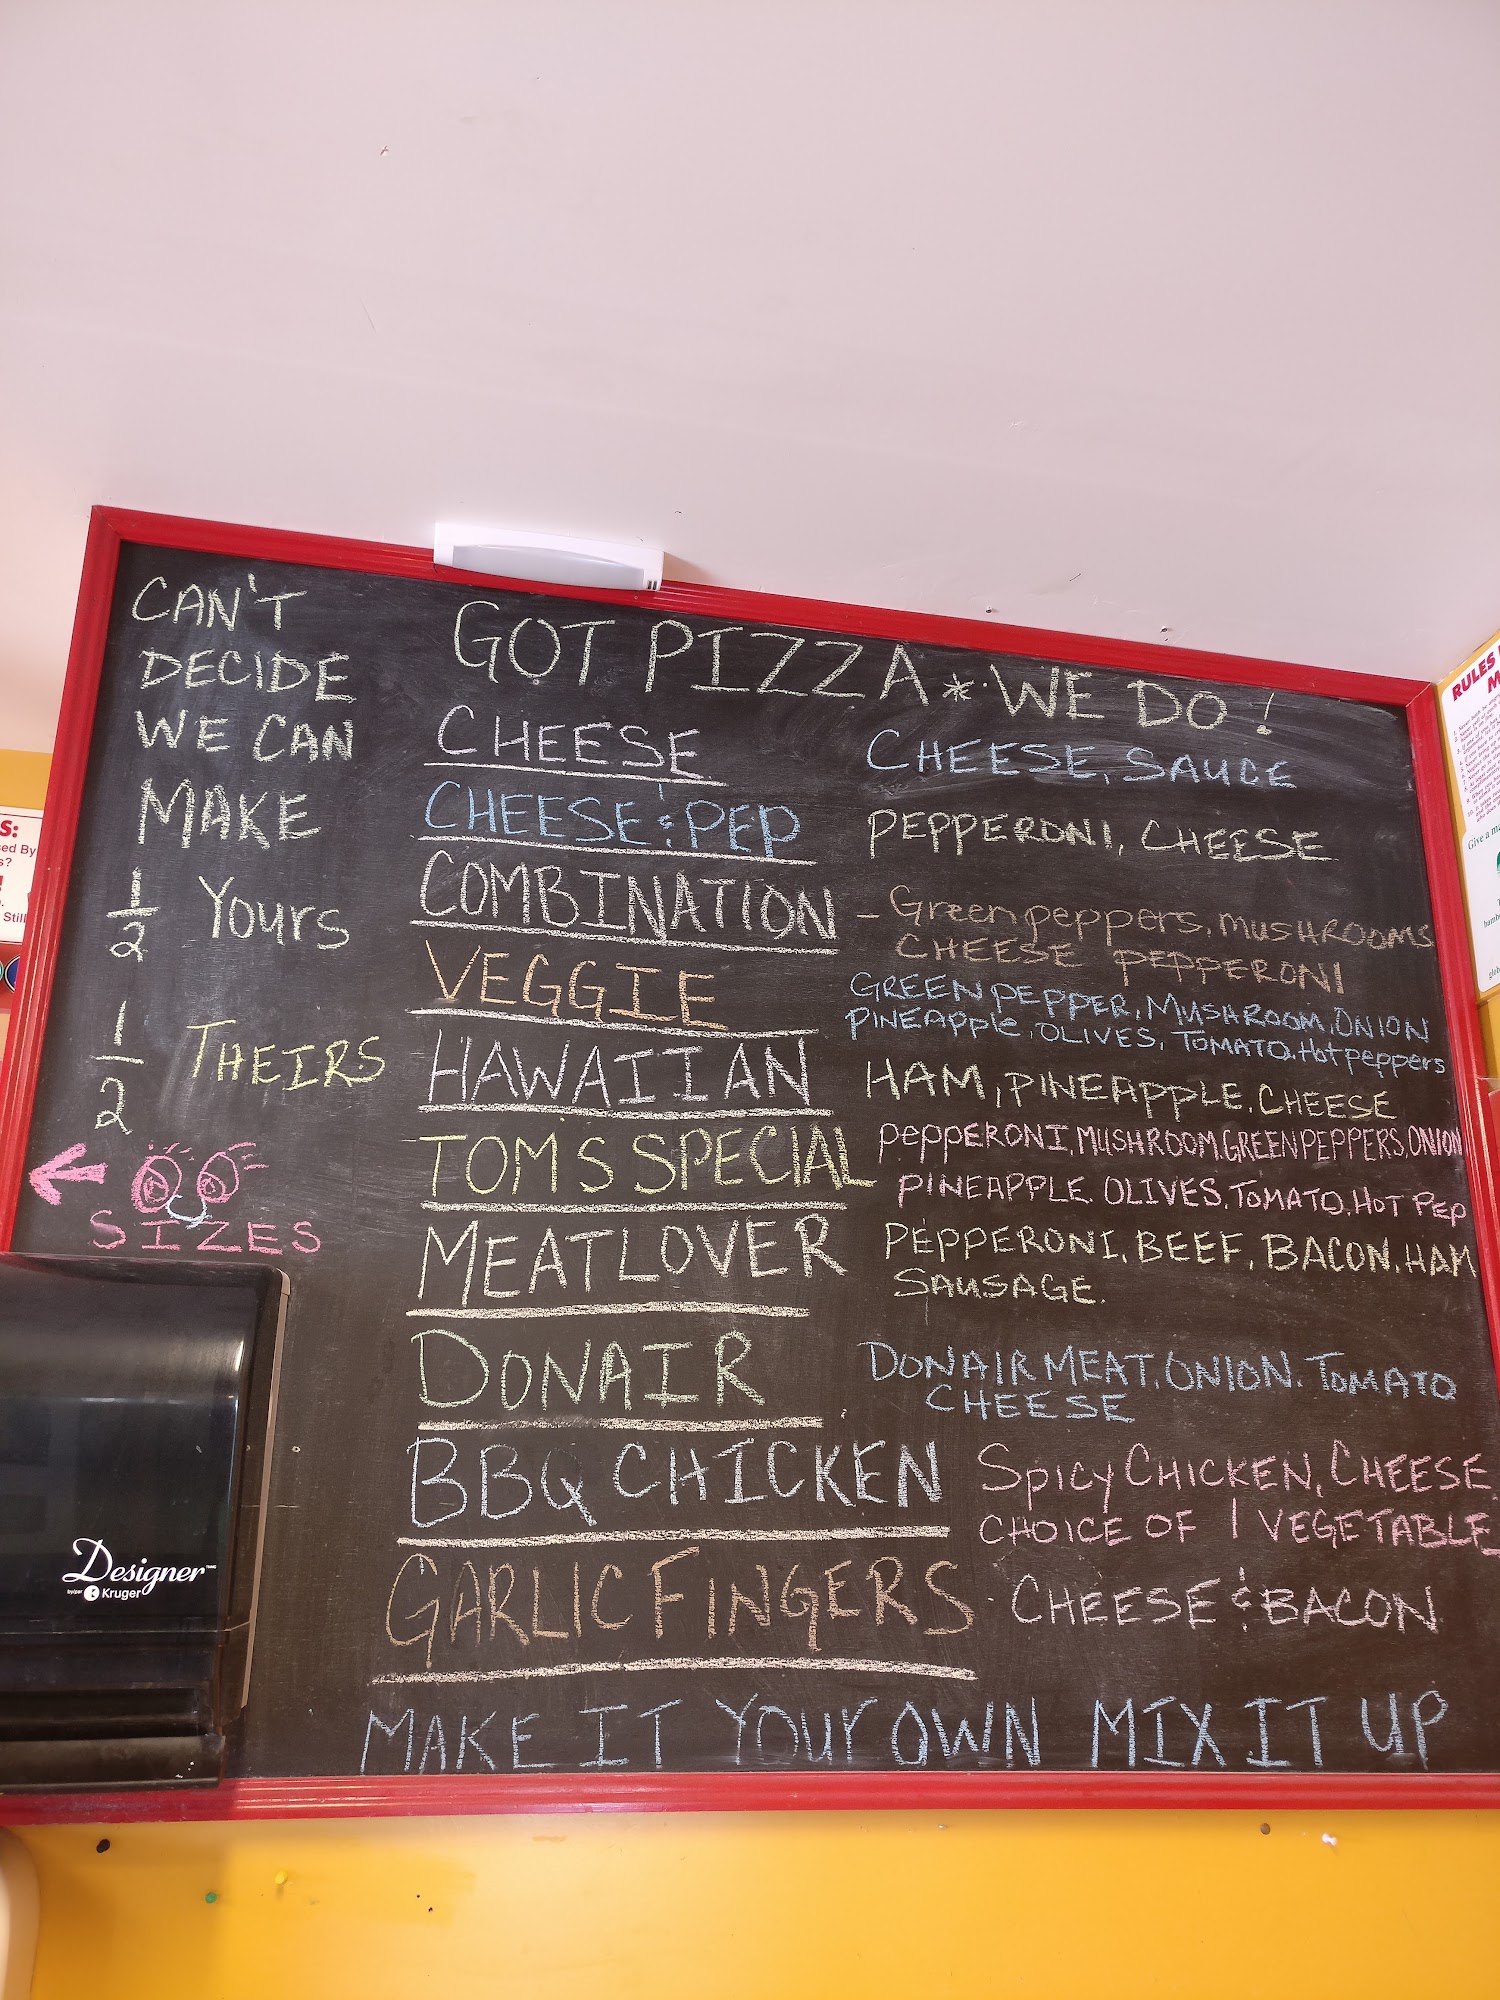 CAN'T
DECIDE
WE CAN
MAKE
1/2 Yours
1/2 THEIRS
SIZES
GOT PIZZA * WE DO!
CHEESE CHEESE, SAUCE
CHEESE & PEP PEPPERONI, CHEESE
COMBINATION - Green peppers, MUSHROOMS
CHEESE PEPPERONI
VEGGIE GREEN PEPPER, MUSHROOM, ONION
PINEApple, OLIVES, TOMATO, Hot peppers
HAWAIIAN HAM, PINEAPPLE, CHEESE
TOMS SPECIAL PEPPERONI, MUSHROOM, GREEN PEPPERS, ONION
PINEAPPLE. OLIVES, TOMATO, HOT PEP
MEATLOVER PEPPERONI, BEEF, BACON, HAM
SAUSAGE.
DONAIR DONAIR MEAT, ONION. TOMATO
CHEESE
BBQ CHICKEN SPICY CHICKEN, CHEESE
CHOICE OF 1 VEGETABLE
GARLIC FINGERS CHEESE & BACON
MAKE IT YOUR OWN MIX IT UP
Designer
by/par Kruger
S:
sed By
s?
Still
RULES
Give a ma